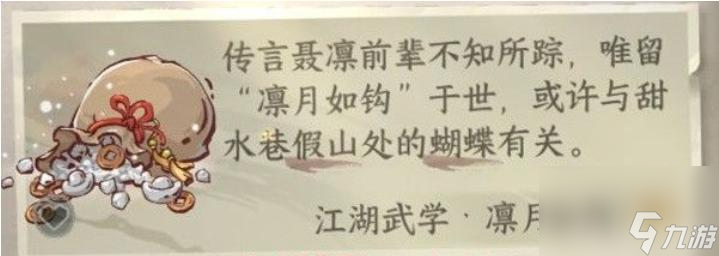 传言聂凛前辈不知所踪，唯留
“凛月如钩”于世，或许与甜
水巷假山处的蝴蝶有关。
江湖武学·凛月
九游